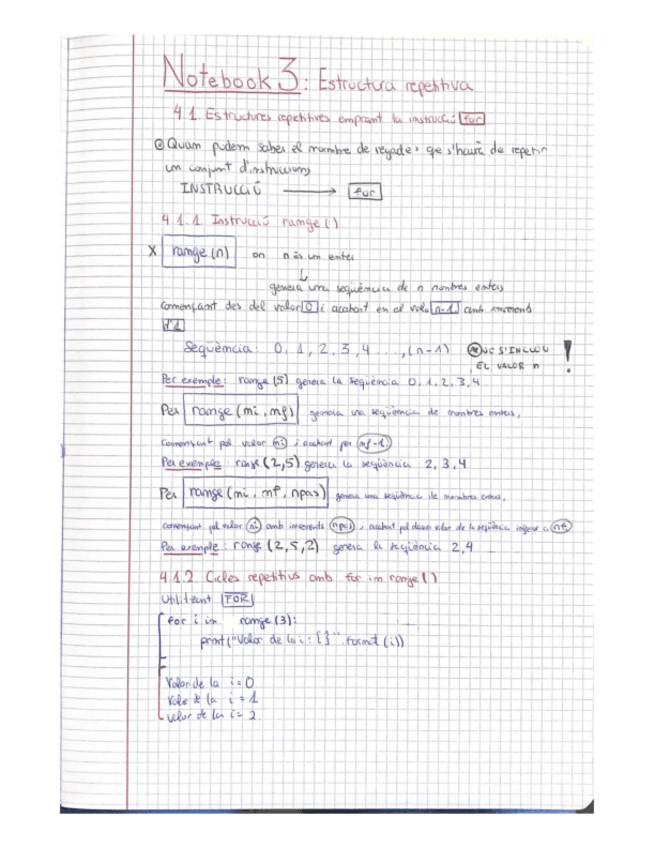 Notebook 3: Estructura repetitiva
4.1. Estructures repetitives emprant la instrucció for
Quan podem saber el nombre de vegades que s'haurà de repetir
un conjunt d'instruccions
INSTRUCCIÓ → for
4.1.1 Instrucció range()
X range(n) on n és un enter
↓
genera una seqüència de n nombres enters
començant des del valor 0 i acabant en el valor n-1 amb increments
d'1
Seqüència: 0, 1, 2, 3, 4 ..., (n-1) NO S'INCLOU !
EL VALOR n
Per exemple: range(5) genera la seqüència 0, 1, 2, 3, 4
Per range(mi, mf) genera una seqüència de nombres enters,
començant pel valor mi i acabant per mf-1
Per exemple: range(2,5) genera la seqüència 2, 3, 4
Per range(mi, mf, npas) genera una seqüència de nombres enters,
començant pel valor ni amb increments npas, acabant pel darrer valor de la seqüència inferior a nf
Per exemple: range(2,5,2) genera la seqüència 2,4
4.1.2 Cicles repetitius amb for in range()
Utilitzant FOR
for i in range(3):
print("Valor de la i: {}".format(i))
Valor de la i = 0
Valor de la i = 1
Valor de la i = 2